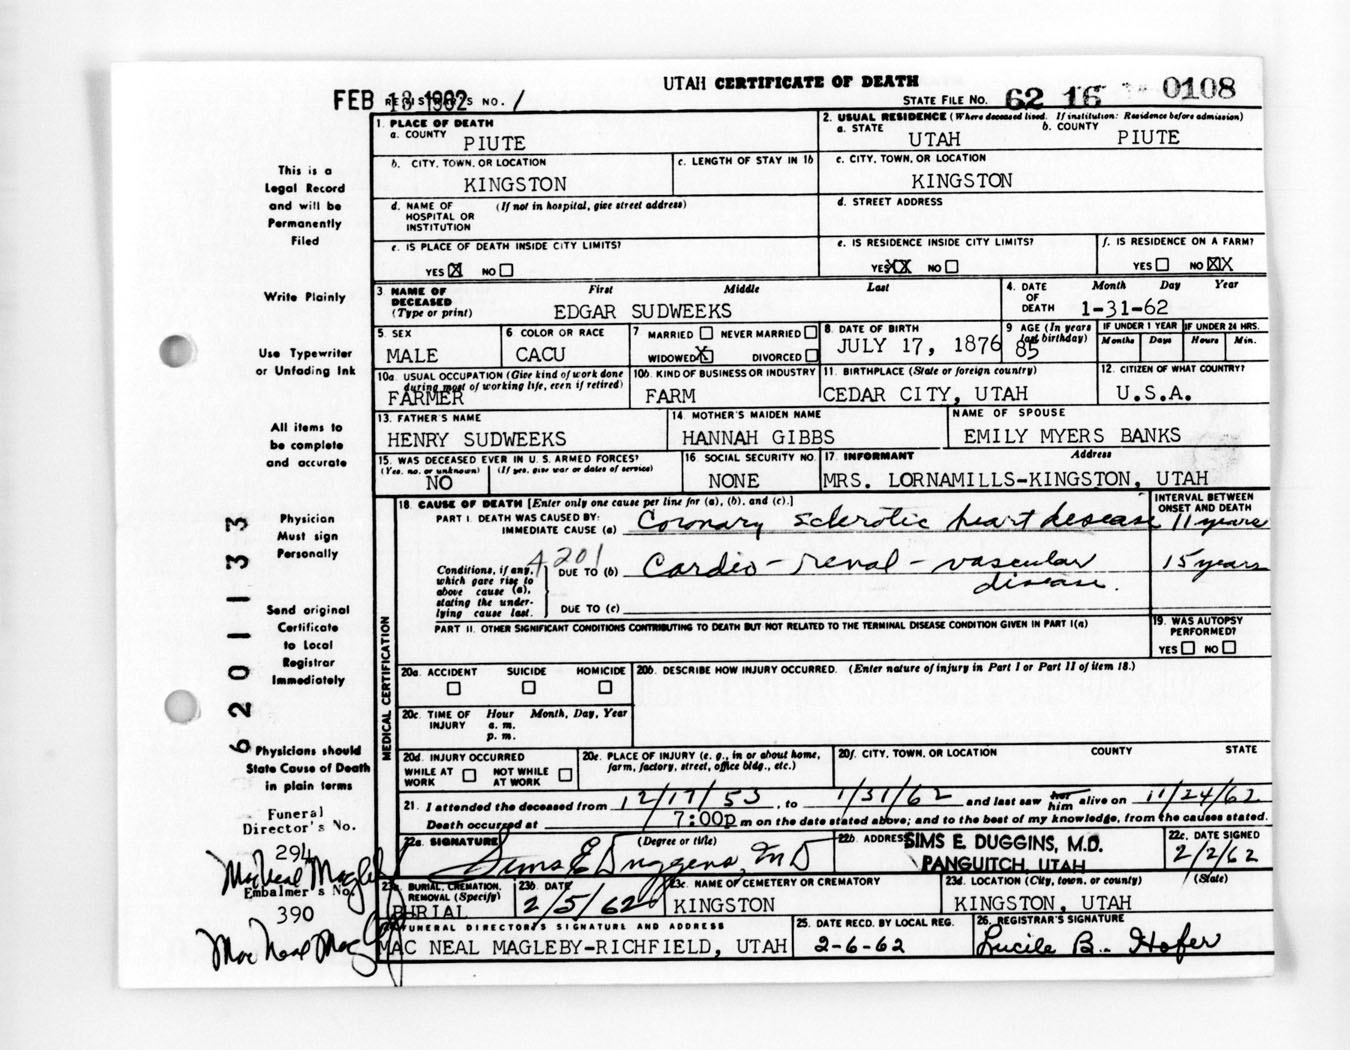 UTAH CERTIFICATE OF DEATH
FEB 13 1962 REGISTRAR'S NO. 1
STATE FILE NO. 62 16 0108
This is a
Legal Record
and will be
Permanently
Filed
Write Plainly
Use Typewriter
or Unfading Ink
All items to
be complete
and accurate
Physician
Must sign
Personally
Send original
Certificate
to Local
Registrar
Immediately
Physicians should
State Cause of Death
in plain terms
Funeral
Director's No.
294
Mac Neal Magleby
Embalmer's No.
390
Mac Neal Magleby
6201133
1. PLACE OF DEATH
a. COUNTY PIUTE
b. CITY, TOWN, OR LOCATION KINGSTON
c. LENGTH OF STAY IN 1b
d. NAME OF HOSPITAL OR INSTITUTION (If not in hospital, give street address)
e. IS PLACE OF DEATH INSIDE CITY LIMITS?
YES X NO
2. USUAL RESIDENCE (Where deceased lived. If institution: Residence before admission)
a. STATE UTAH b. COUNTY PIUTE
c. CITY, TOWN, OR LOCATION KINGSTON
d. STREET ADDRESS
e. IS RESIDENCE INSIDE CITY LIMITS?
YES XX NO
f. IS RESIDENCE ON A FARM?
YES NO XX
3 NAME OF DECEASED (Type or print) First Middle Last
EDGAR SUDWEEKS
4. DATE OF DEATH Month Day Year
1-31-62
5. SEX MALE
6 COLOR OR RACE CACU
7 MARRIED NEVER MARRIED
WIDOWED X DIVORCED
8. DATE OF BIRTH JULY 17, 1876
9 AGE (In years last birthday) 85
IF UNDER 1 YEAR Months Days
IF UNDER 24 HRS. Hours Min.
10a. USUAL OCCUPATION (Give kind of work done during most of working life, even if retired)
FARMER
10b. KIND OF BUSINESS OR INDUSTRY
FARM
11. BIRTHPLACE (State or foreign country)
CEDAR CITY, UTAH
12. CITIZEN OF WHAT COUNTRY?
U.S.A.
13. FATHER'S NAME
HENRY SUDWEEKS
14. MOTHER'S MAIDEN NAME
HANNAH GIBBS
NAME OF SPOUSE
EMILY MYERS BANKS
15. WAS DECEASED EVER IN U. S. ARMED FORCES?
(Yes, no, or unknown) (If yes, give war or dates of service)
NO
16 SOCIAL SECURITY NO.
NONE
17. INFORMANT Address
MRS. LORNAMILLS-KINGSTON, UTAH
MEDICAL CERTIFICATION
18. CAUSE OF DEATH [Enter only one cause per line for (a), (b), and (c).]
INTERVAL BETWEEN ONSET AND DEATH
PART I. DEATH WAS CAUSED BY:
IMMEDIATE CAUSE (a) Coronary sclerotic heart desease 11 years
4201
Conditions, if any, which gave rise to above cause (a), stating the underlying cause last.
DUE TO (b) Cardio-renal-vascular disease. 15 years
DUE TO (c)
PART II. OTHER SIGNIFICANT CONDITIONS CONTRIBUTING TO DEATH BUT NOT RELATED TO THE TERMINAL DISEASE CONDITION GIVEN IN PART I(a)
19. WAS AUTOPSY PERFORMED?
YES NO
20a. ACCIDENT SUICIDE HOMICIDE
20b. DESCRIBE HOW INJURY OCCURRED. (Enter nature of injury in Part I or Part II of item 18.)
20c. TIME OF INJURY Hour Month, Day, Year
a. m.
p. m.
20d. INJURY OCCURRED
WHILE AT WORK NOT WHILE AT WORK
20e. PLACE OF INJURY (e. g., in or about home, farm, factory, street, office bldg., etc.)
20f. CITY, TOWN, OR LOCATION COUNTY STATE
21. I attended the deceased from 12/17/53, to 1/31/62 and last saw her him alive on 11/24/62
Death occurred at 7:00p m on the date stated above; and to the best of my knowledge, from the causes stated.
22a. SIGNATURE (Degree or title)
Sims E Duggins, MD
22b. ADDRESS SIMS E. DUGGINS, M.D.
PANGUITCH, UTAH
22c. DATE SIGNED
2/2/62
23a. BURIAL, CREMATION, REMOVAL (Specify)
BURIAL
23b. DATE
2/5/62
23c. NAME OF CEMETERY OR CREMATORY
KINGSTON
23d. LOCATION (City, town, or county) (State)
KINGSTON, UTAH
FUNERAL DIRECTOR'S SIGNATURE AND ADDRESS
MAC NEAL MAGLEBY-RICHFIELD, UTAH
25. DATE RECD. BY LOCAL REG.
2-6-62
26. REGISTRAR'S SIGNATURE
Lucile B. Hofer